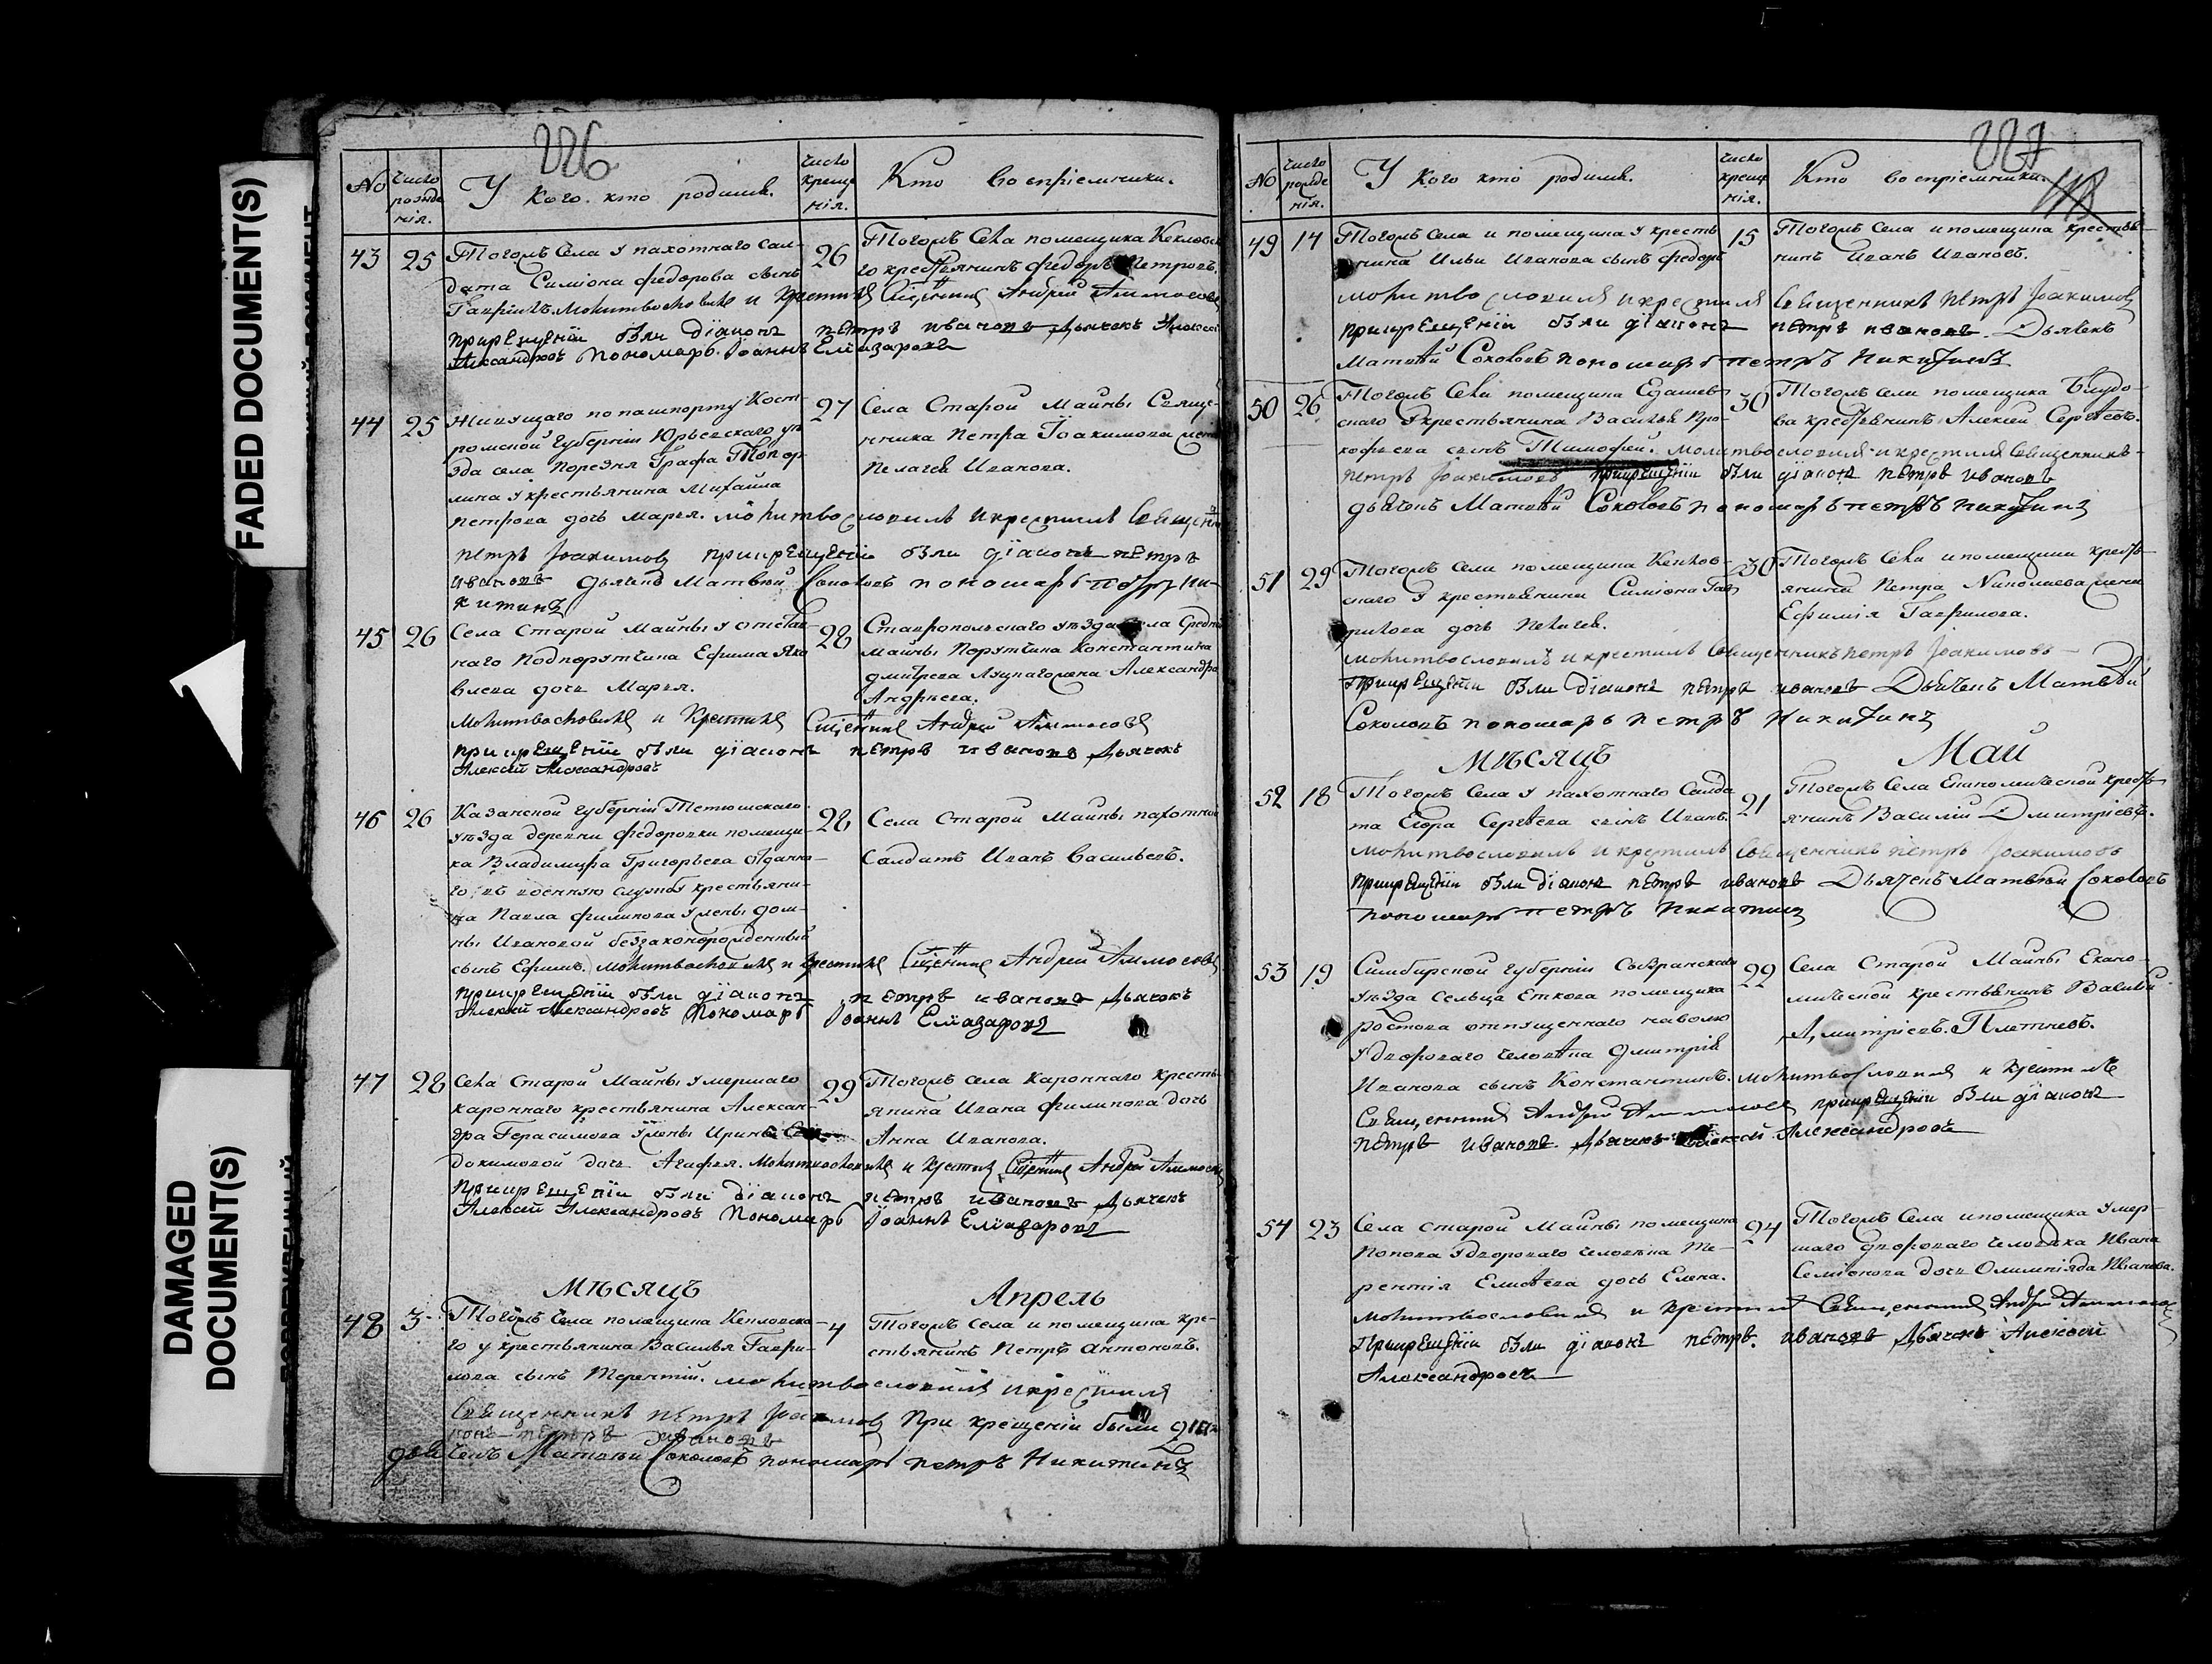 FADED DOCUMENT(S)
DAMAGED
DOCUMENT(S)
226
No
число рожденія.
У Кого. кто родился.
число крещенія.
Кто воспріемники.
43 25
Тогожъ Села у пахотнаго сал-
дата Симіона Федорова сынъ
Гавріилъ. Молитвословилъ и Крестилъ Сщенникъ Андрей Аммосовъ
прикрещеніи были діаконъ петръ ивановъ Дьячокъ Алексей
Александровъ Пономарь Іоаннъ Елиазаровъ
26
Тогожъ Села помещика
го крестьянинъ Федоръ Петровъ.
44 25
Живущаго по пашпорту Кост-
ромской Губерніи Юрьевскаго уѣ
зда села Порезня Графа
у крестьянина Михайла
петрова дочь Марья. молитвословилъ и крестилъ Священникъ
петръ Іоакимовъ прикрещеніи были діаконъ петръ
ивановъ дьячекъ Матвѣй Соколовъ пономарь петръ Ни-
китинъ
27
Села Старой Майны Священ-
ника Петра Іоакимова жена
Пелагея Иванова.
45 26
Села Старой Майны у отстав-
наго Подпорутчика Ефима Яко
влева дочь Марья.
Молитвословилъ и Крестилъ Сщенникъ Андрей Аммосовъ
прикрещеніи были діаконъ петръ ивановъ Дьячокъ
Алексей Александровъ
28
Ставропольскаго уѣзда села Средней
Майны Порутчика Константина
Дмитрева жена Александра
Андреева.
46 26
Казанской Губерніи Тетюшскаго
уѣзда деревни Федоровки помещи-
ка Владимира Григорьева отданна-
го въ военную службу крестьяни-
на Павла Филипова у жены дом-
ны Ивановой беззаконорожденный
сынъ Ефимъ. Молитвословилъ и Крестилъ Сщенникъ Андрей Аммосовъ
прикрещеніи были діаконъ петръ ивановъ Дьячокъ
Алексей Александровъ Пономарь Іоаннъ Елиазаровъ
28
Села Старой Майны пахотной
Салдатъ Иванъ Васильевъ.
47 28
Села Старой Майны умершаго
крестьянина Алексан-
дра Герасимова у жены Ирины
докимовой дочь Агафья. Молитвословилъ и Крестилъ Сщенникъ Андрей Аммосовъ
прикрещеніи были діаконъ петръ ивановъ Дьячекъ
Алексей Александровъ Пономарь Іоаннъ Елиазаровъ
29
Тогожъ Села кресть-
янина Ивана Филипова дочь
Анна Иванова.
Мѣсяцъ Апрель
48 3
Тогожъ Села помещика
го у крестьянина Василья Гаври-
лова сынъ Терентій. молитвословилъ и крестилъ
Священникъ петръ Іоакимовъ При крещеніи были діа
конъ петръ ивановъ
дьячекъ Матвѣй Соколовъ пономарь петръ Никитинъ
4
Тогожъ Села и помещика кре-
стьянинъ Петръ Антоновъ.
227
No
число рожденія.
У Кого кто родился.
число крещенія.
Кто воспріемники.
49 14
Тогожъ Села и помещика у кресть
янина Ильи Иванова сынъ Федоръ
молитвословилъ и крестилъ Священникъ петръ Іоакимовъ
прикрещеніи были діаконъ петръ ивановъ Дьячекъ
Матвѣй Соколовъ пономарь петръ Никитинъ
15
Тогожъ Села и помещика крестья-
нинъ Иванъ Ивановъ.
50 26
Тогожъ Села помещика
скаго у крестьянина Василья Про-
кофьева сынъ Тимофей. Молитвословилъ и крестилъ Священникъ
петръ Іоакимовъ прикрещеніи были діаконъ петръ ивановъ
дьячекъ Матвѣй Соколовъ пономарь петръ никитинъ
30
Тогожъ Села помещика
ва крестьянинъ Алексей Сергѣевъ.
51 29
Тогожъ Села помещика
скаго у крестьянина Симіона Гав
рилова дочь Пелагея.
молитвословилъ и крестилъ Священникъ петръ Іоакимовъ
прикрещеніи были діаконъ петръ ивановъ Дьячекъ Матвѣй
Соколовъ пономарь петръ Никитинъ
30
Тогожъ Села и помещика кресть-
янина Петра Николаева жена
Ефимія Гаврилова.
Мѣсяцъ Май
52 18
Тогожъ Села у пахотнаго Салда
та Егора Сергѣева сынъ Иванъ.
молитвословилъ и крестилъ Священникъ петръ Іоакимовъ
прикрещеніи были діаконъ петръ ивановъ Дьячекъ Матвѣй Соколовъ
пономарь петръ Никитинъ
21
Тогожъ Села Економической кресть-
янинъ Василій Дмитріевъ.
53 19
Симбирской Губерніи Сызранскаго
уѣзда Сельца Еткова помещика
Ростова отпущеннаго наволю
у двороваго человѣка Дмитрія
Иванова сынъ Константинъ. молитвословилъ и Крестилъ
Священникъ Андрей Аммосовъ прикрещеніи были діаконъ
петръ ивановъ Дьячекъ Алексей Александровъ
22
Села Старой Майны Еконо-
мической крестьянинъ Василій
Дмитріевъ. Плетневъ.
54 23
Села Старой Майны помещика
Попова у двороваго человѣка Те-
рентія Елисѣева дочь Елена.
молитвословилъ и Крестилъ Священникъ Андрей Аммосовъ
Прикрещеніи были діаконъ петръ ивановъ Дьячекъ Алексей
Александровъ
24
Тогожъ Села и помещика умер-
шаго двороваго человѣка Ивана
Семіонова дочь Олимпіяда Иванова.